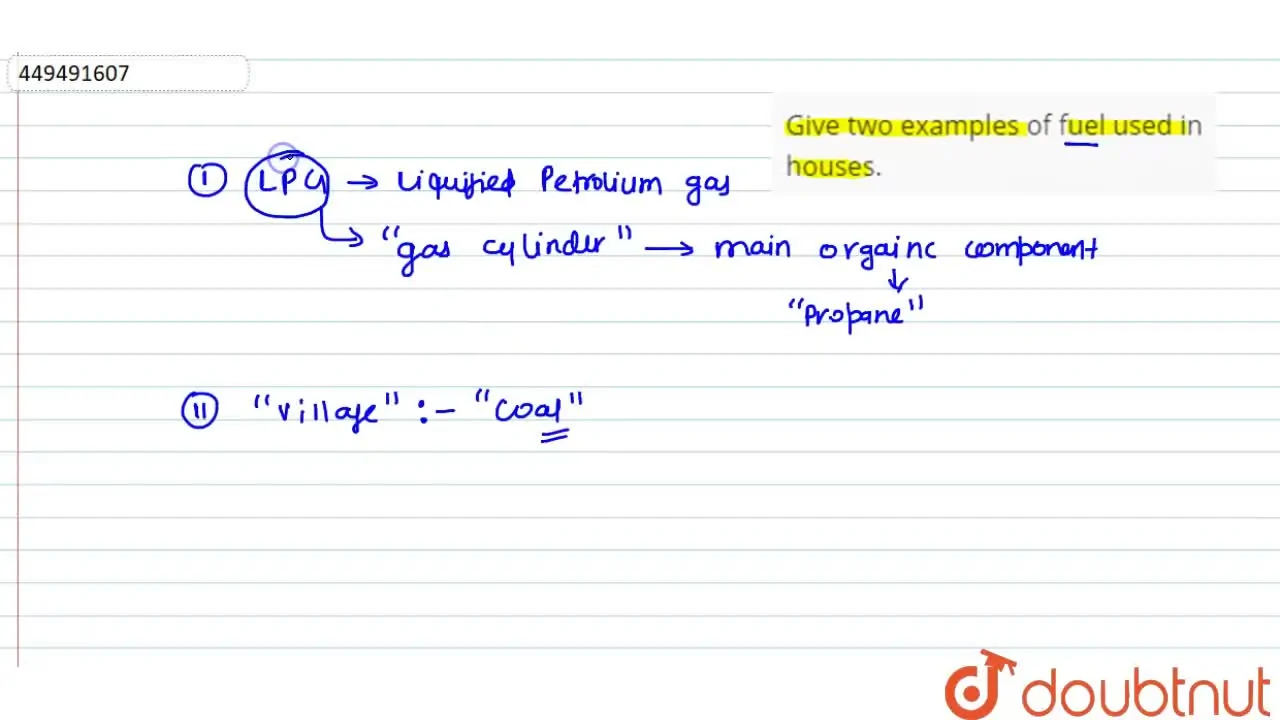 449491607
Give two examples of fuel used in
houses.
I LPG → Liquified Petrolium gas
"gas cylinder" → main orgainc component
"Propane"
II "Village" :- "Coal"
doubtnut